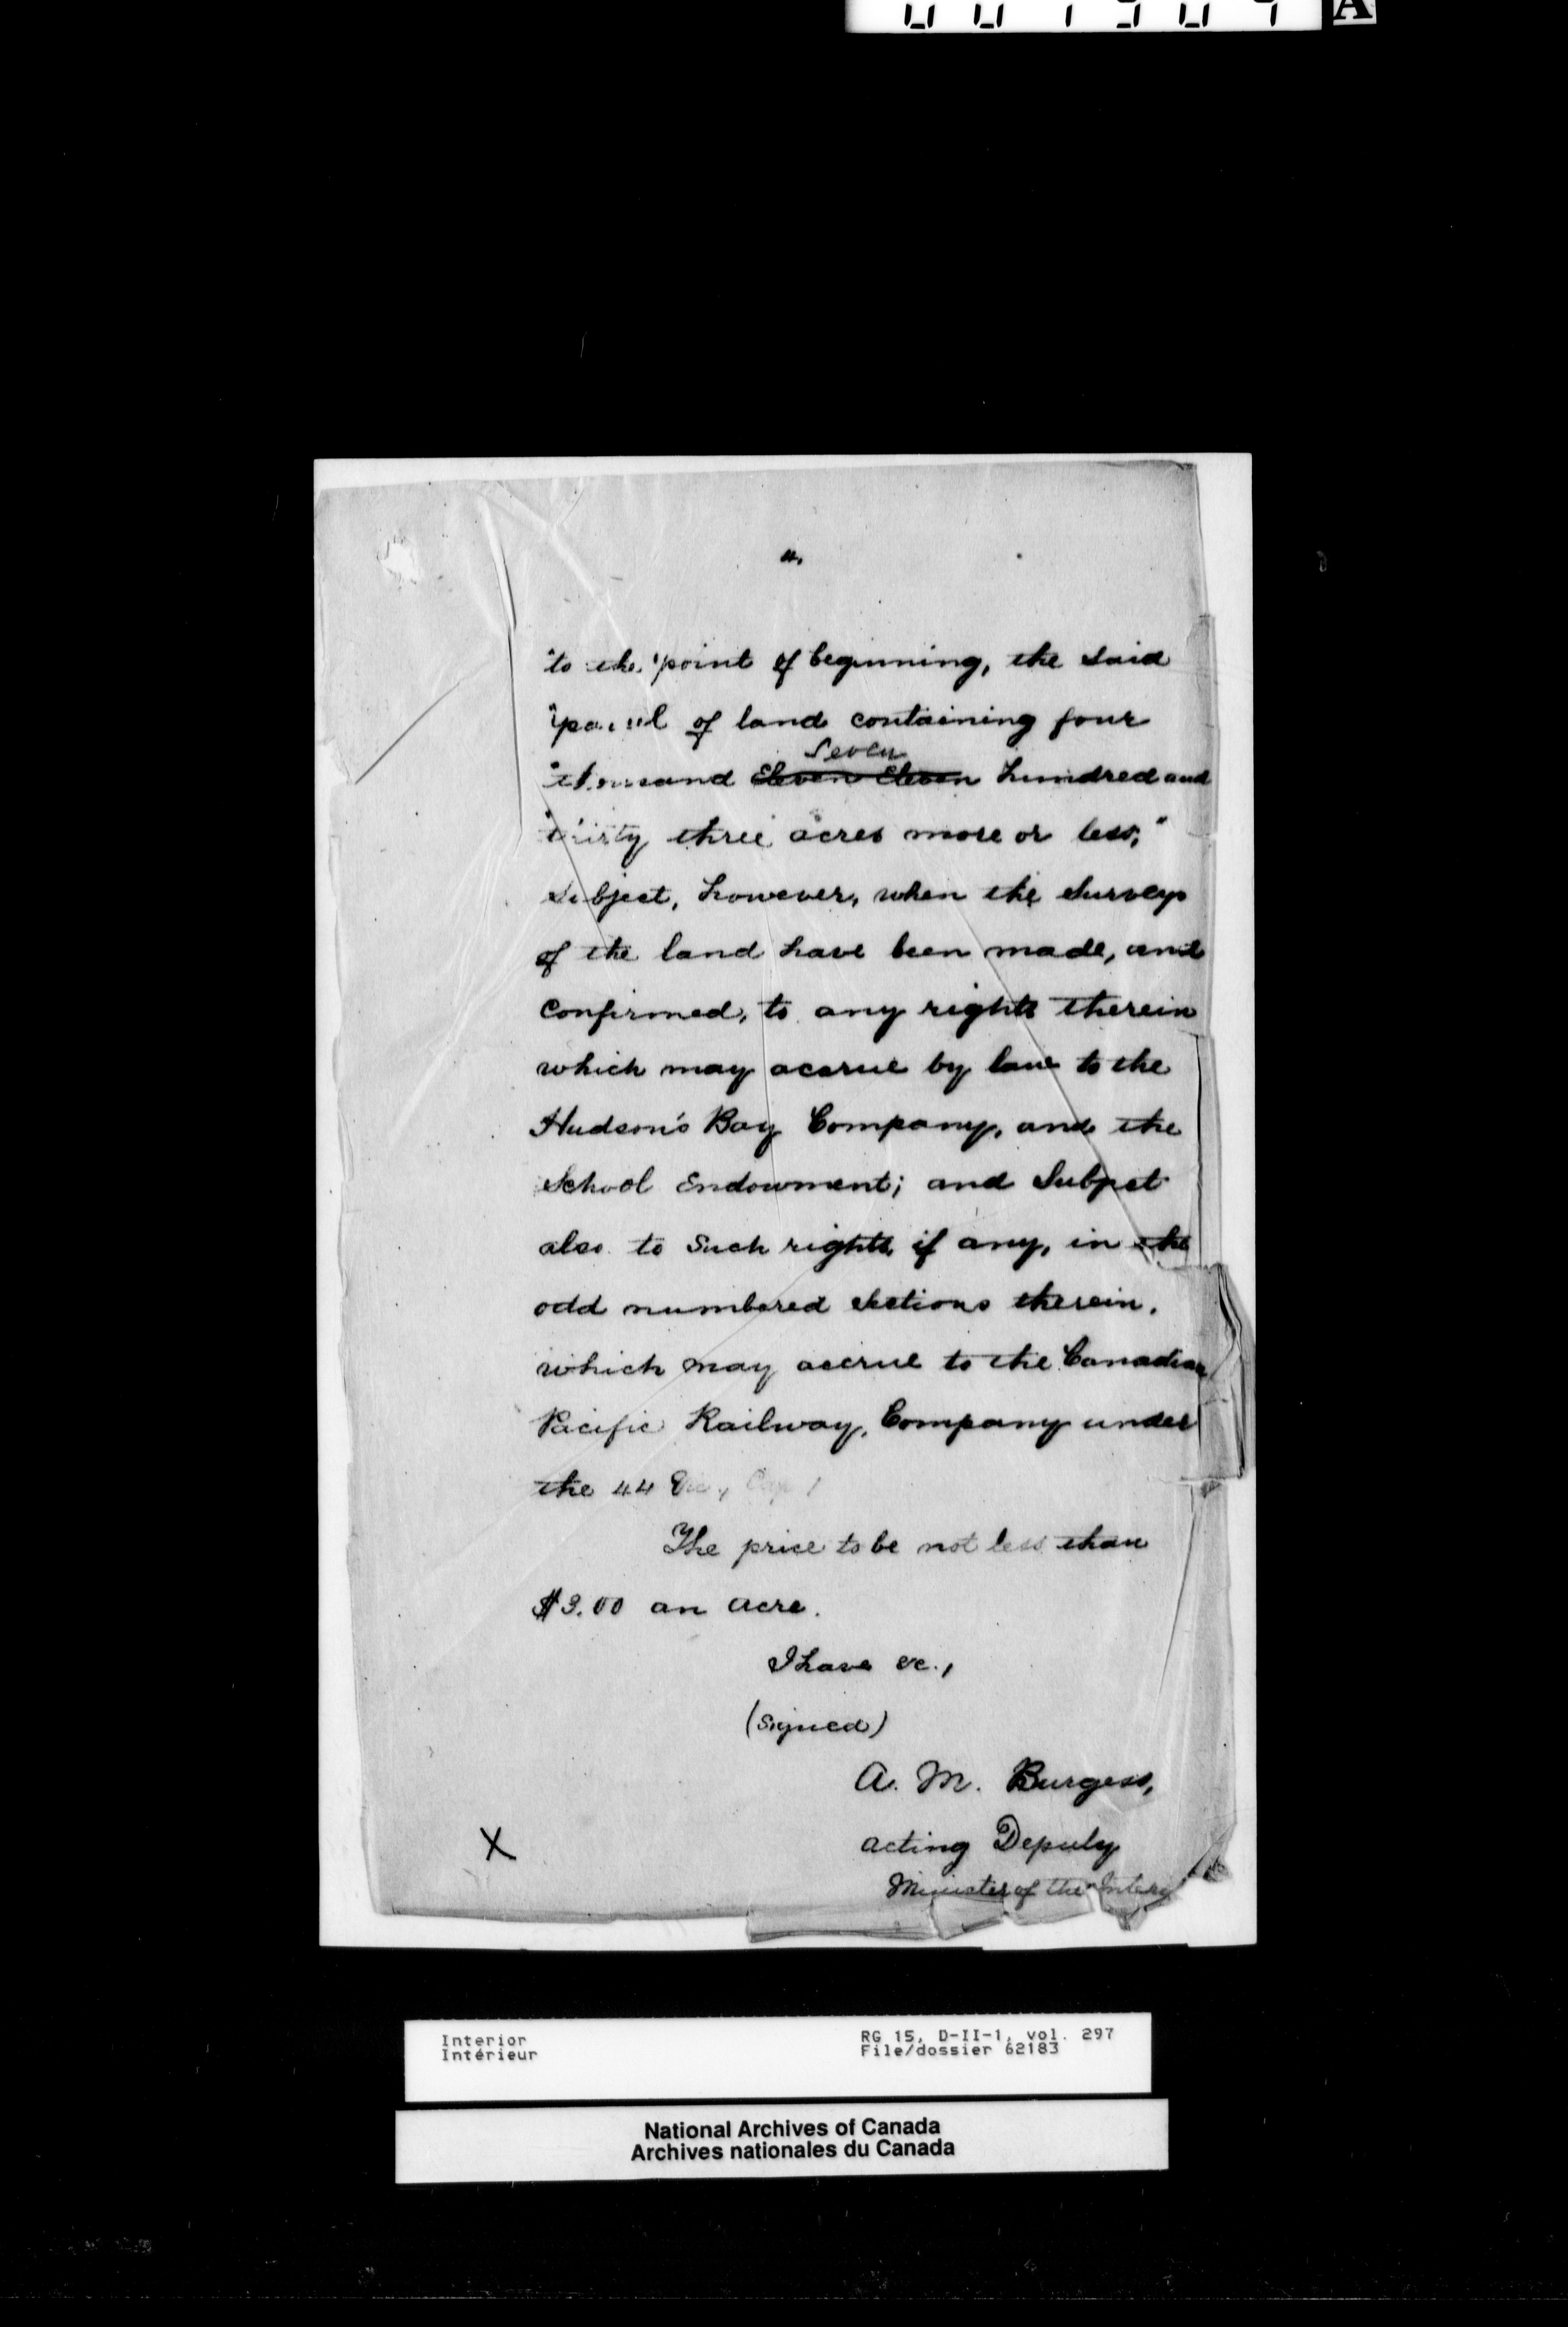 4.
"to the point of beginning, the said
"parcel of land containing four
Seven
"thousand Eleven Eleven hundred and
"thirty three acres more or less,"
subject, however, when the surveys
of the land have been made, and
confirmed, to any rights therein
which may accrue by law to the
Hudson's Bay Company, and the
School Endowment; and subject
also to such rights, if any, in the
odd numbered sections therein,
which may accrue to the Canadian
Pacific Railway, Company under
the 44 Vic., Cap 1
The price to be not less than
$3.00 an acre.
I have &c.,
(signed)
A. M. Burgess,
acting Deputy
Minister of the Interior
X
Interior
Intérieur
RG 15, D-II-1, vol. 297
File/dossier 62183
National Archives of Canada
Archives nationales du Canada